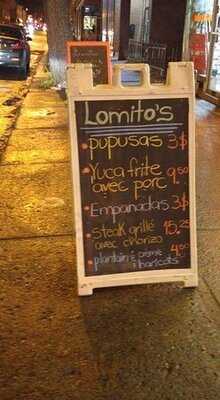 Lomito's
pupusas 3$
Yuca frite 9.50
avec porc
Empanadas 3$
Steak grillé 15.25
avec chorizo
plantain & crème 4.50
haricots